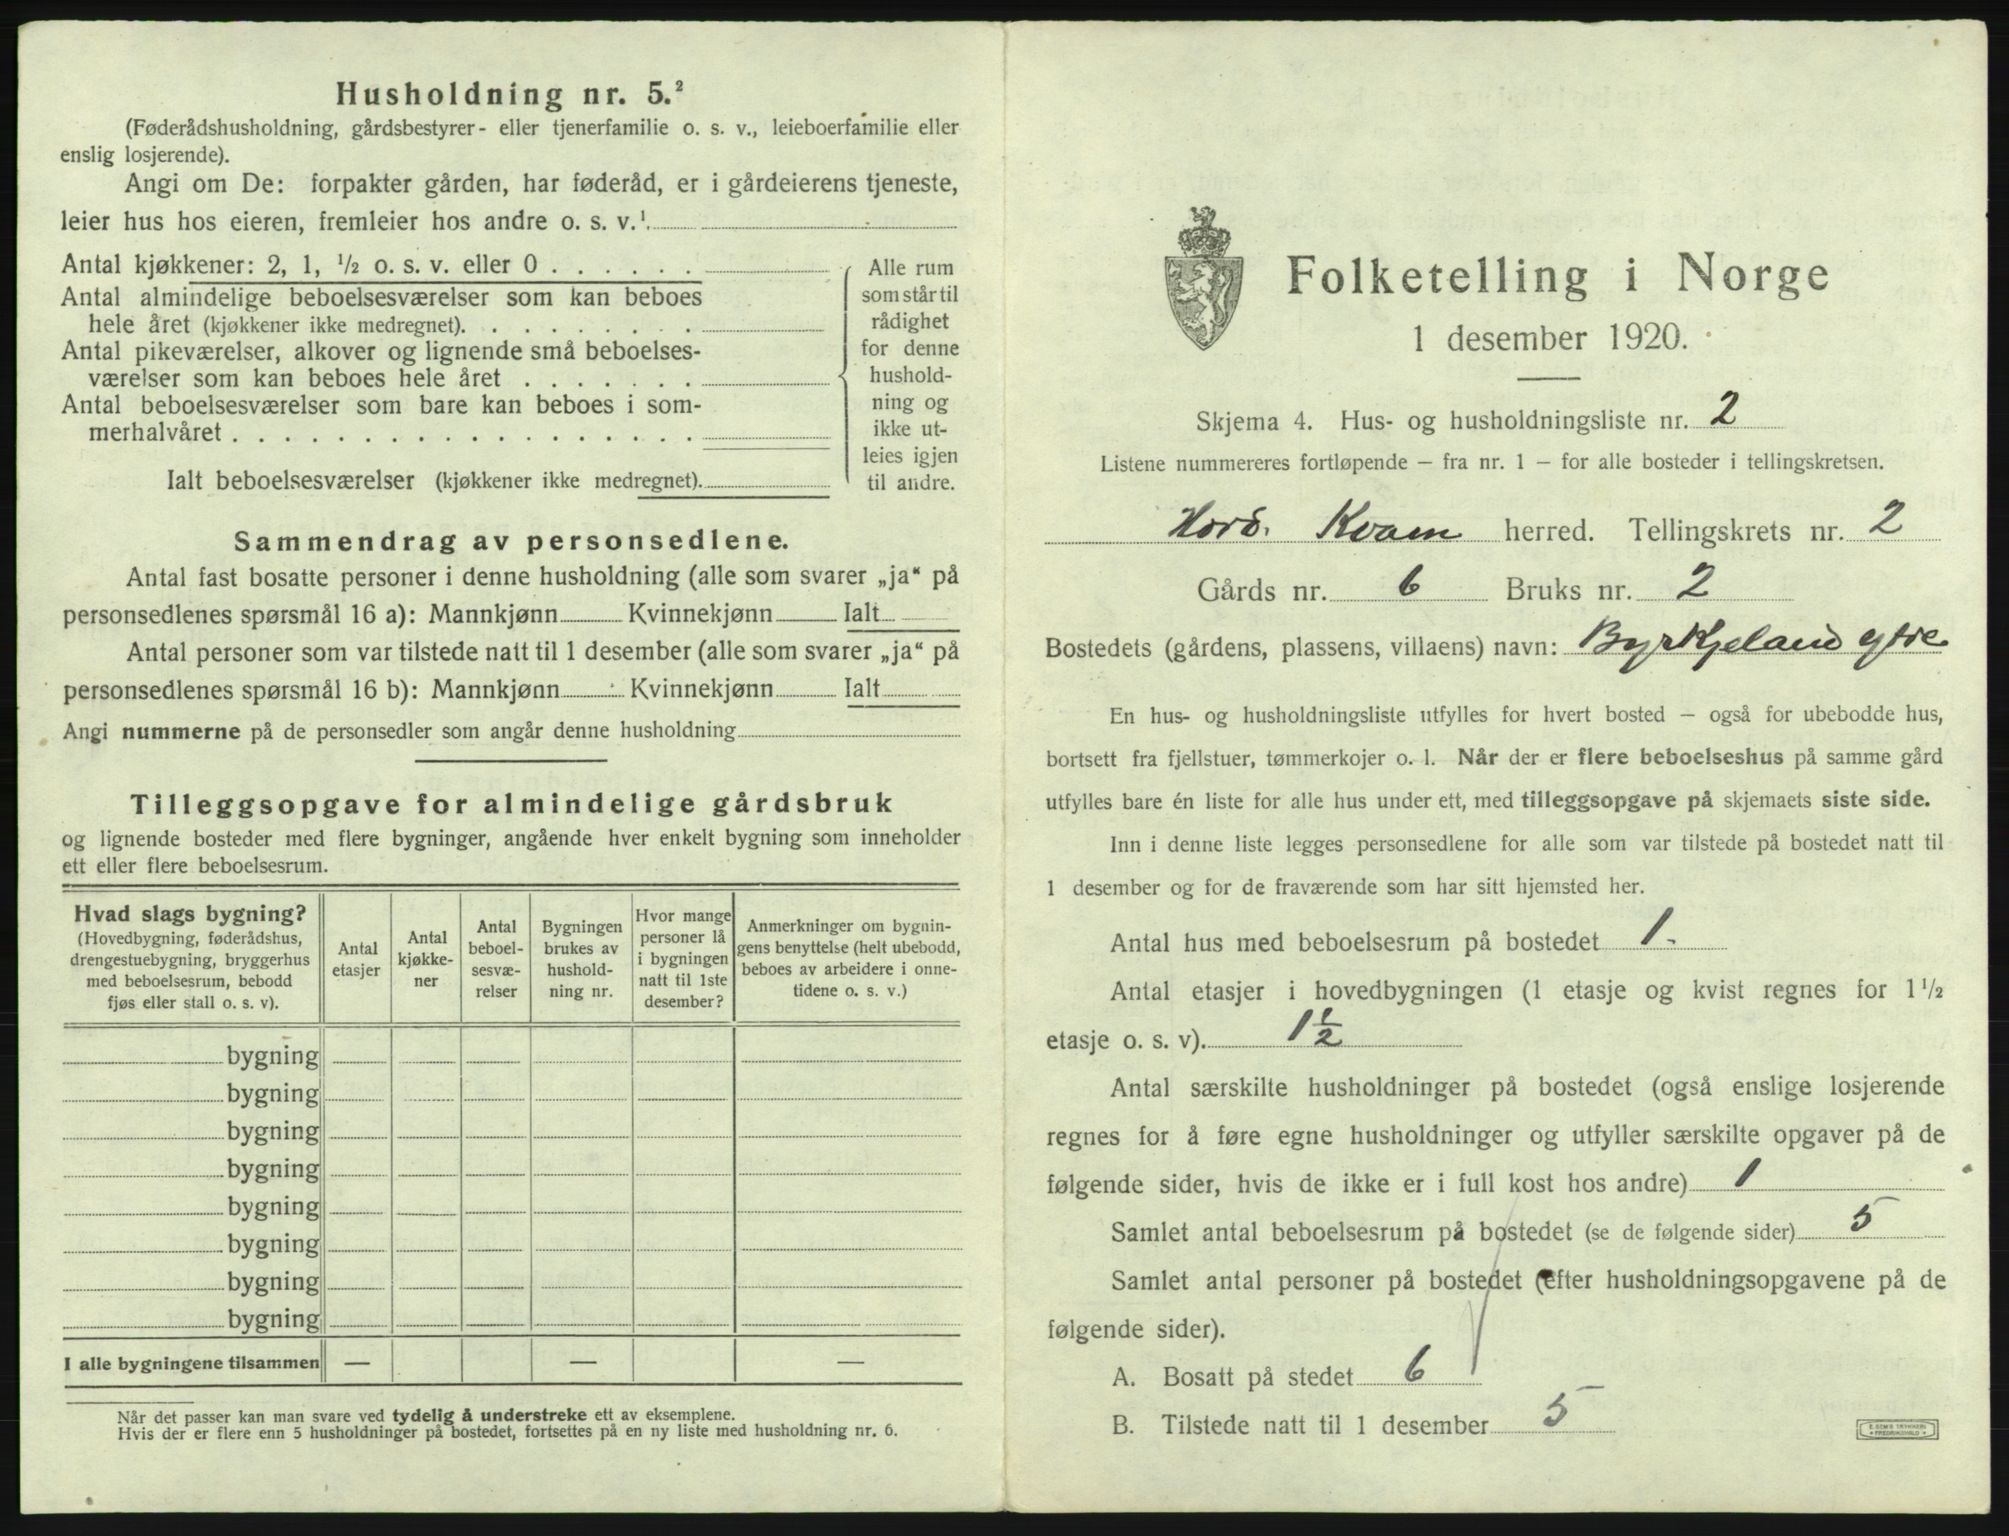 Husholdning nr. 5.²
(Føderådshusholdning, gårdsbestyrer- eller tjenerfamilie o. s. v., leieboerfamilie eller
enslig losjerende).
Angi om De: forpakter gården, har føderåd, er i gårdeierens tjeneste,
leier hus hos eieren, fremleier hos andre o. s. v.¹
Antal kjøkkener: 2, 1, ½ o. s. v. eller 0
Antal almindelige beboelsesværelser som kan beboes
hele året (kjøkkener ikke medregnet).
Antal pikeværelser, alkover og lignende små beboelses-
værelser som kan beboes hele året
Antal beboelsesværelser som bare kan beboes i som-
merhalvåret
Ialt beboelsesværelser (kjøkkener ikke medregnet).
Alle rum
som står til
rådighet
for denne
hushold-
ning og
ikke ut-
leies igjen
til andre.
Sammendrag av personsedlene.
Antal fast bosatte personer i denne husholdning (alle som svarer „ja“ på
personsedlenes spørsmål 16 a): Mannkjønn Kvinnekjønn Ialt
Antal personer som var tilstede natt til 1 desember (alle som svarer „ja“ på
personsedlenes spørsmål 16 b): Mannkjønn Kvinnekjønn Ialt
Angi nummerne på de personsedler som angår denne husholdning
Tilleggsopgave for almindelige gårdsbruk
og lignende bosteder med flere bygninger, angående hver enkelt bygning som inneholder
ett eller flere beboelsesrum.
Hvad slags bygning?
(Hovedbygning, føderådshus,
drengestuebygning, bryggerhus
med beboelsesrum, bebodd
fjøs eller stall o. s. v).
Antal
etasjer
Antal
kjøkke-
ner
Antal
beboel-
sesvæ-
relser
Bygningen
brukes av
hushold-
ning nr.
Hvor mange
personer lå
i bygningen
natt til 1ste
desember?
Anmerkninger om bygnin-
gens benyttelse (helt ubebodd,
beboes av arbeidere i onne-
tidene o. s. v.)
bygning
bygning
bygning
bygning
bygning
bygning
bygning
bygning
I alle bygningene tilsammen — — —
Når det passer kan man svare ved tydelig å understreke ett av eksemplene.
Hvis der er flere enn 5 husholdninger på bostedet, fortsettes på en ny liste med husholdning nr. 6.
Folketelling i Norge
1 desember 1920.
Skjema 4. Hus- og husholdningsliste nr. 2
Listene nummereres fortløpende – fra nr. 1 – for alle bosteder i tellingskretsen.
Hord. Kvam herred. Tellingskrets nr. 2
Gårds nr. 6 Bruks nr. 2
Bostedets (gårdens, plassens, villaens) navn: Byrkjeland ytre
En hus- og husholdningsliste utfylles for hvert bosted – også for ubebodde hus,
bortsett fra fjellstuer, tømmerkojer o. l. Når der er flere beboelseshus på samme gård
utfylles bare én liste for alle hus under ett, med tilleggsopgave på skjemaets siste side.
Inn i denne liste legges personsedlene for alle som var tilstede på bostedet natt til
1 desember og for de fraværende som har sitt hjemsted her.
Antal hus med beboelsesrum på bostedet 1.
Antal etasjer i hovedbygningen (1 etasje og kvist regnes for 1½
etasje o. s. v). 1½
Antal særskilte husholdninger på bostedet (også enslige losjerende
regnes for å føre egne husholdninger og utfyller særskilte opgaver på de
følgende sider, hvis de ikke er i full kost hos andre) 1
Samlet antal beboelsesrum på bostedet (se de følgende sider) 5
Samlet antal personer på bostedet (efter husholdningsopgavene på de
følgende sider).
A. Bosatt på stedet 6
B. Tilstede natt til 1 desember 5
E. SEM'S TRYKKERI
FREDRIKSHALD